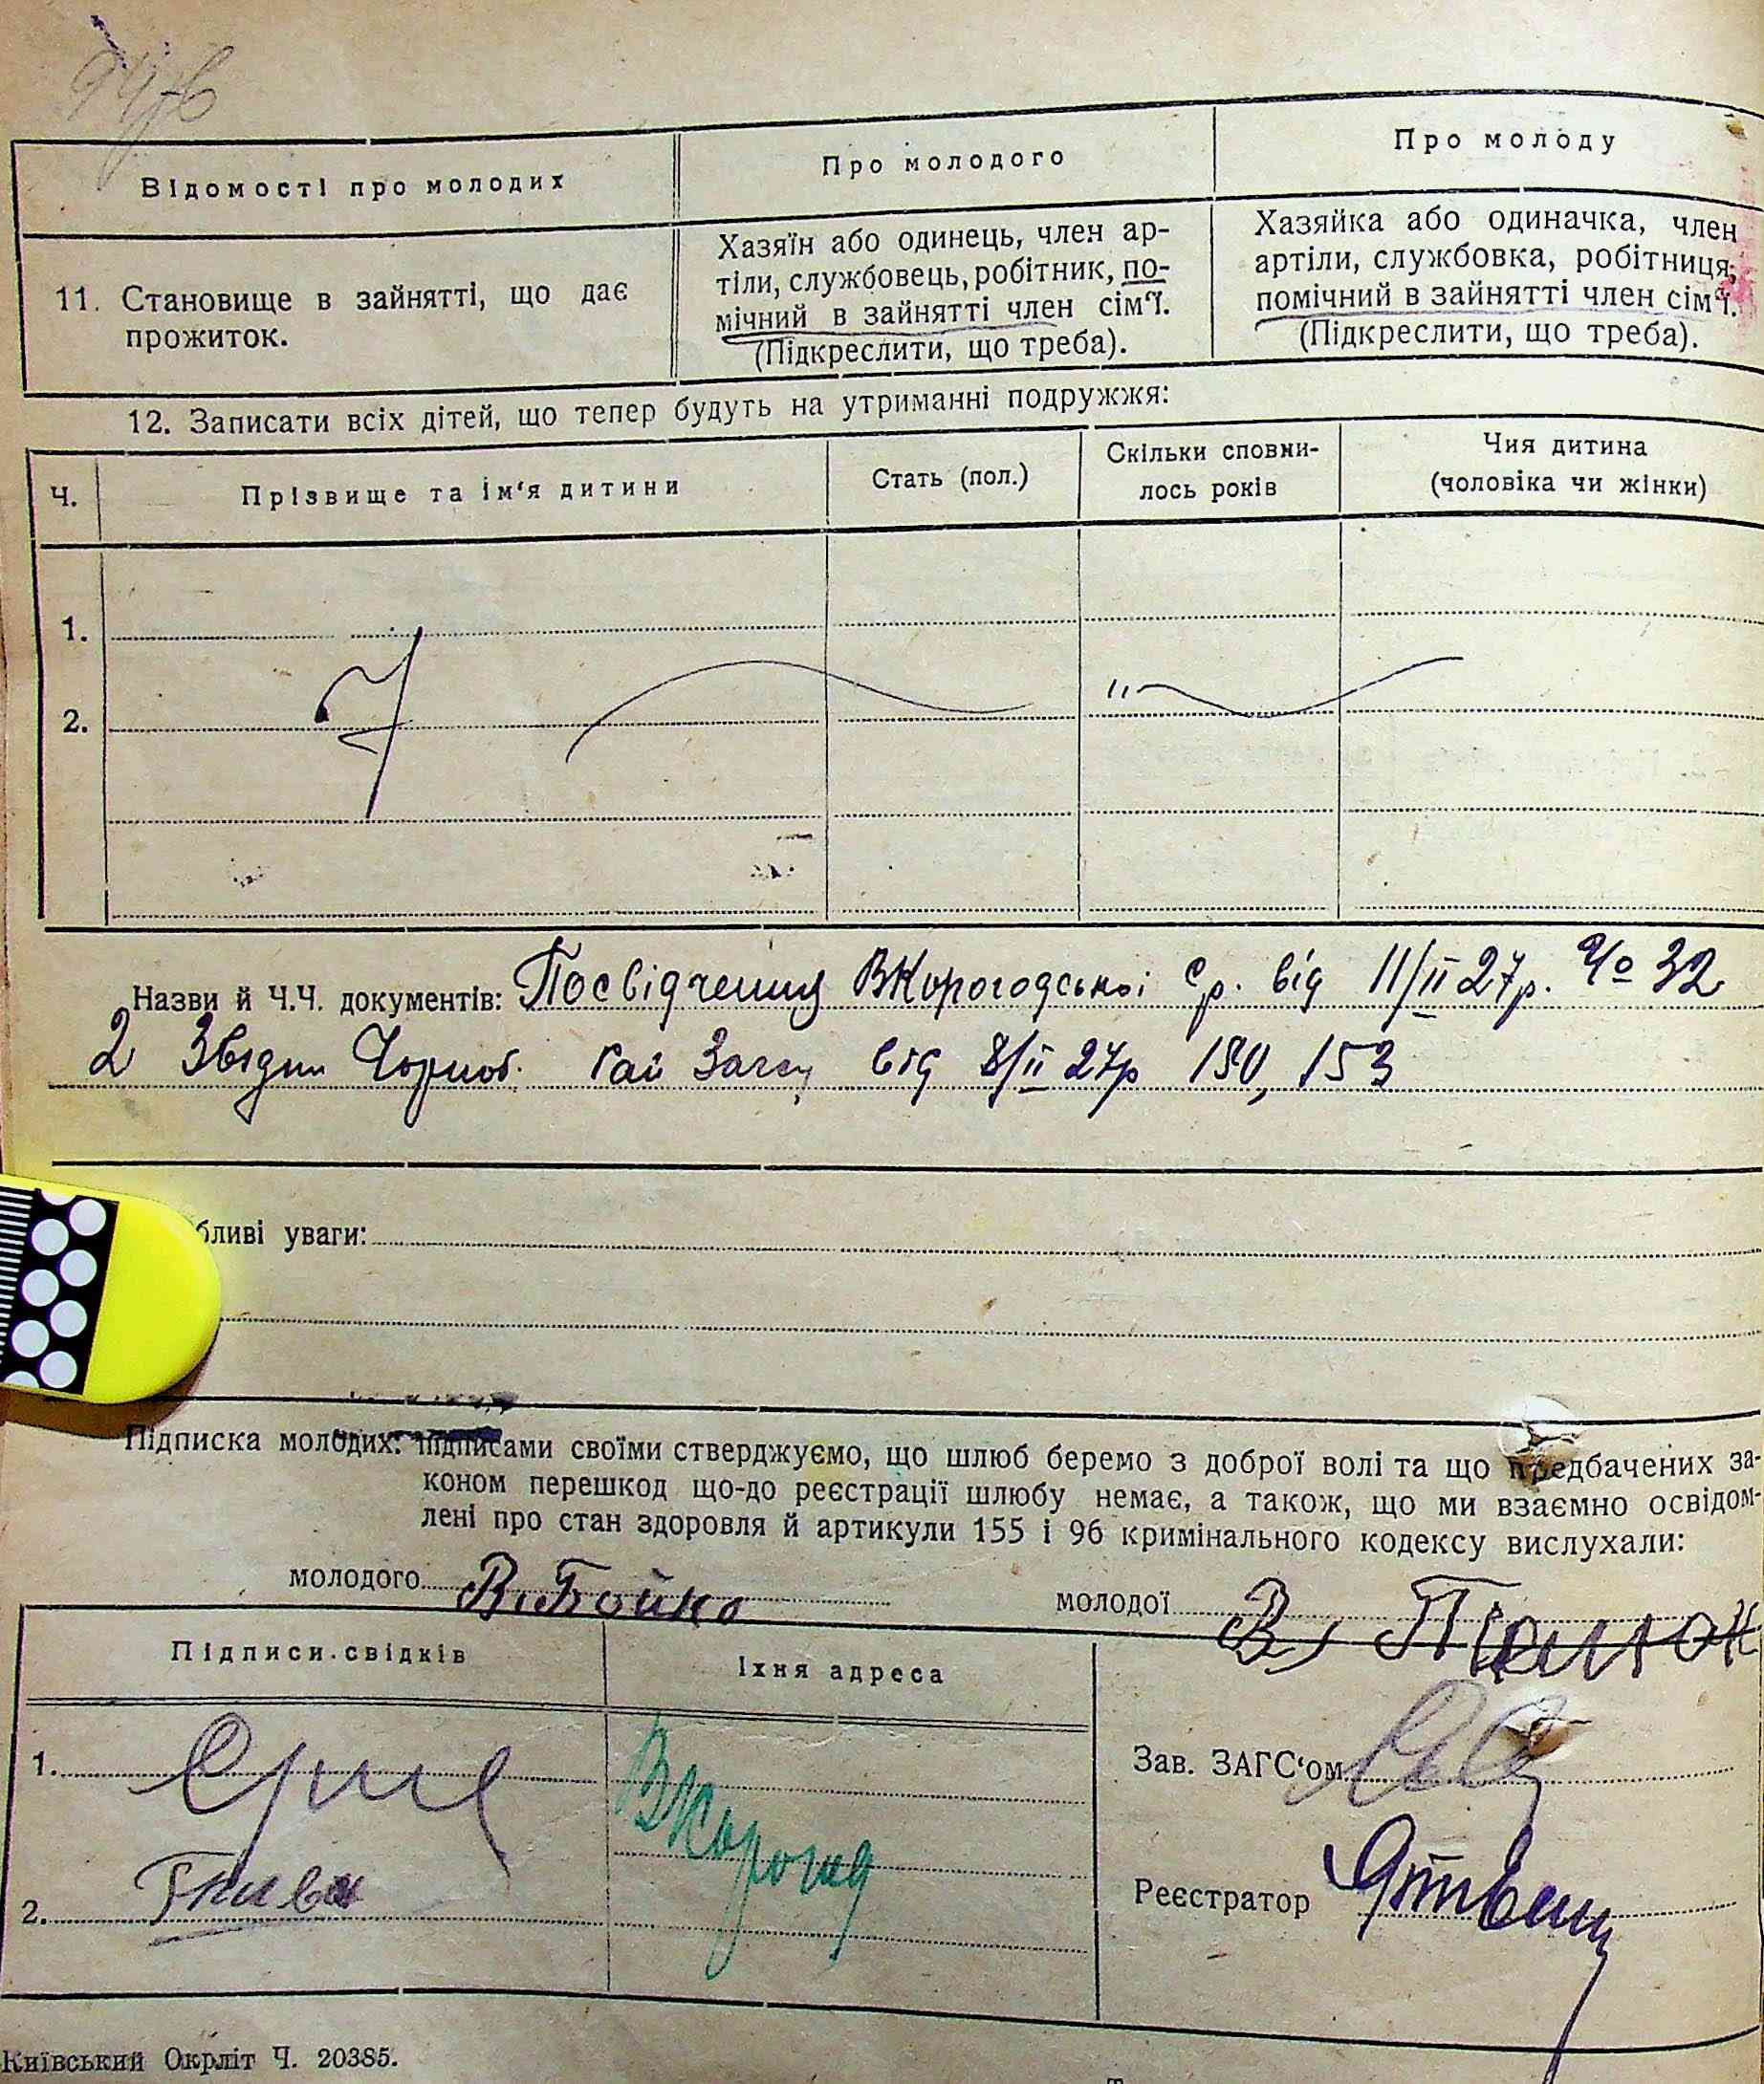 Відомості про молодих
Про молодого
Про молоду
11. Становище в зайнятті, що дає
прожиток.
Хазяїн або одинець, член ар-
тіли, службовець, робітник, по-
мічний в зайнятті член сім‘ї.
(Підкреслити, що треба).
Хазяйка або одиначка, член
артіли, службовка, робітниця,
помічний в зайнятті член сім‘ї.
(Підкреслити, що треба).
12. Записати всіх дітей, що тепер будуть на утриманні подружжя:
Ч.
Прізвище та ім‘я дитини
Стать (пол.)
Скільки сповни-
лось років
Чия дитина
(чоловіка чи жінки)
1.
2.
Назви й Ч.Ч. документів: Посвідчення ВКорогодської Ср. від 11/ІІ 27р. Чо 32
2 Звідки Чорноб. Загсу від 8/ІІ 27р 150, 153
бливі уваги:
Підписка молодих: підписами своїми стверджуємо, що шлюб беремо з доброї волі та що предбачених за-
коном перешкод що-до реєстрації шлюбу немає, а також, що ми взаємно освідом-
лені про стан здоровля й артикули 155 і 96 кримінального кодексу вислухали:
молодого В. Бойко
молодої В.
Підписи свідків
Їхня адреса
1.
2.
ВКорогод
Зав. ЗАГС‘ом
Реєстратор
Київський Окрліт Ч. 20385.